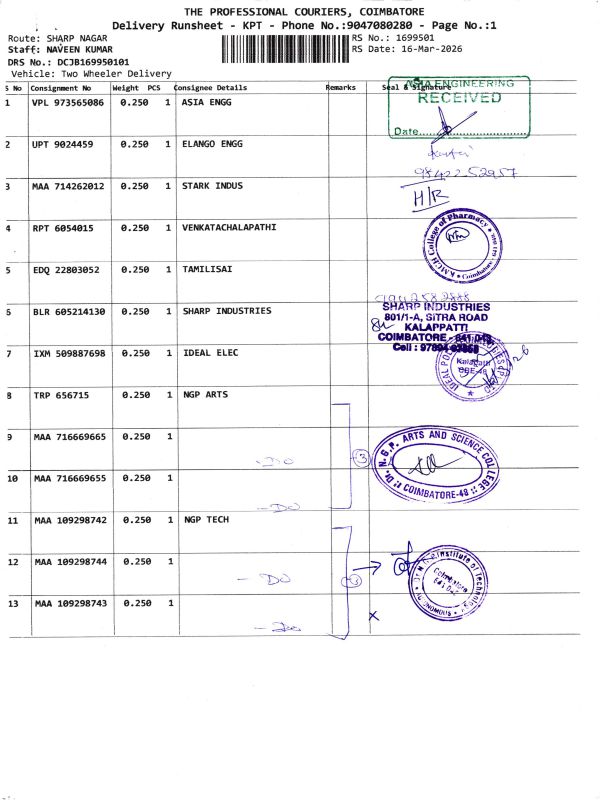 THE PROFESSIONAL COURIERS, COIMBATORE
Delivery Runsheet - KPT - Phone No.:9047080280 - Page No.:1
Route: SHARP NAGAR
RS No.: 1699501
Staff: NAVEEN KUMAR
RS Date: 16-Mar-2026
DRS No.: DCJB169950101
Vehicle: Two Wheeler Delivery
S No Consignment No Weight PCS Consignee Details Remarks Seal & Signature
1 VPL 973565086 0.250 1 ASIA ENGG
ASIA ENGINEERING
RECEIVED
Date
2 UPT 9024459 0.250 1 ELANGO ENGG
9842252957
3 MAA 714262012 0.250 1 STARK INDUS
H/R
4 RPT 6054015 0.250 1 VENKATACHALAPATHI
KMCH College of Pharmacy
Coimbatore
5 EDQ 22803052 0.250 1 TAMILISAI
6 BLR 605214130 0.250 1 SHARP INDUSTRIES
SHARP INDUSTRIES
801/1-A, SITRA ROAD
KALAPPATTI
COIMBATORE - 641 048
Cell :
7 IXM 509887698 0.250 1 IDEAL ELEC
Kalapatti
CBE-48
8 TRP 656715 0.250 1 NGP ARTS
9 MAA 716669665 0.250 1
- Do
3
Dr. N.G.P. ARTS AND SCIENCE COLLEGE
COIMBATORE-48
10 MAA 716669655 0.250 1
- Do
11 MAA 109298742 0.250 1 NGP TECH
12 MAA 109298744 0.250 1
- Do
3
Institute of Technology
Coimbatore
13 MAA 109298743 0.250 1
- Do
x